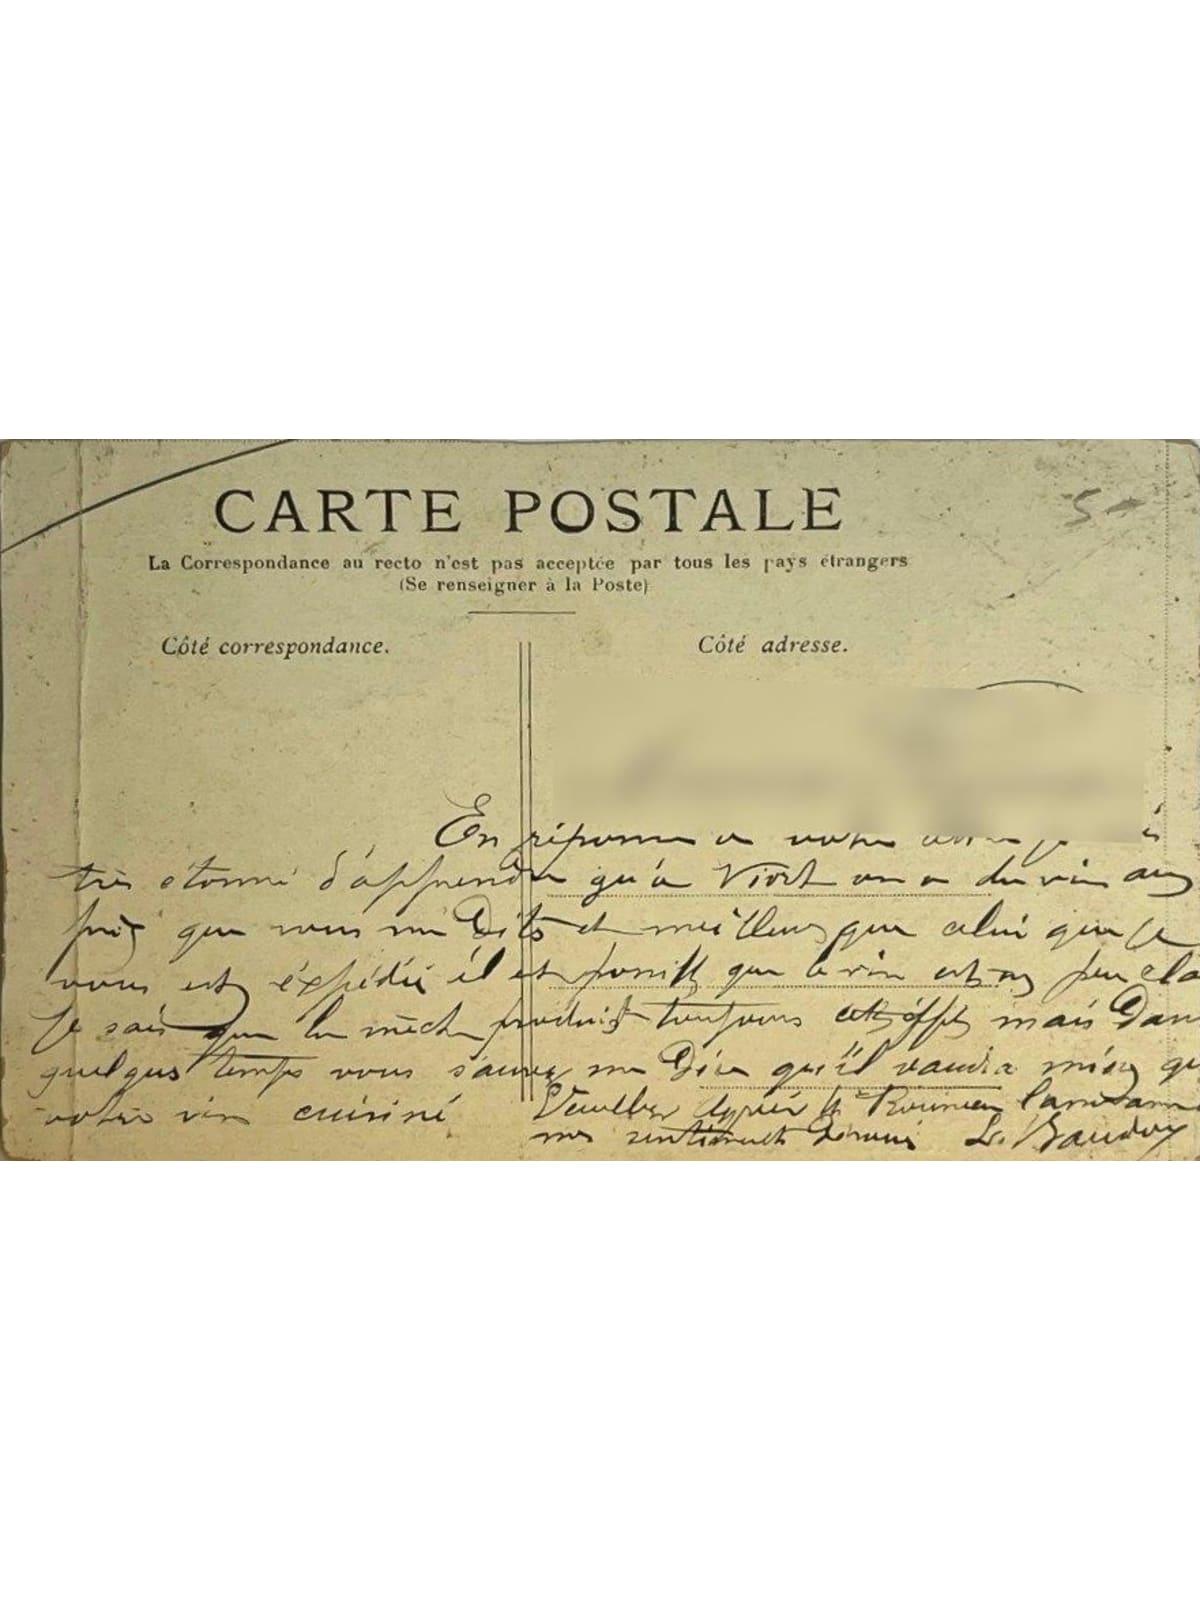 CARTE POSTALE
La Correspondance au recto n'est pas acceptée par tous les pays étrangers
(Se renseigner à la Poste)
Côté correspondance.
Côté adresse.
5-
En réponse a votre
très étonné d'apprendre qu'a Niort on a du vin aux
prix que vous me dites et meilleur que celui que je
vous est éxpédié il et possible que le vin est un peu cla
Je sais que la mèche produit toujours cet éffet mais dans
quelques temps vous saurez me dire qu'il vaudra mieux que
votre vin cuisiné Veuillez Agréer
mes sentiments dévoués L. Baudry